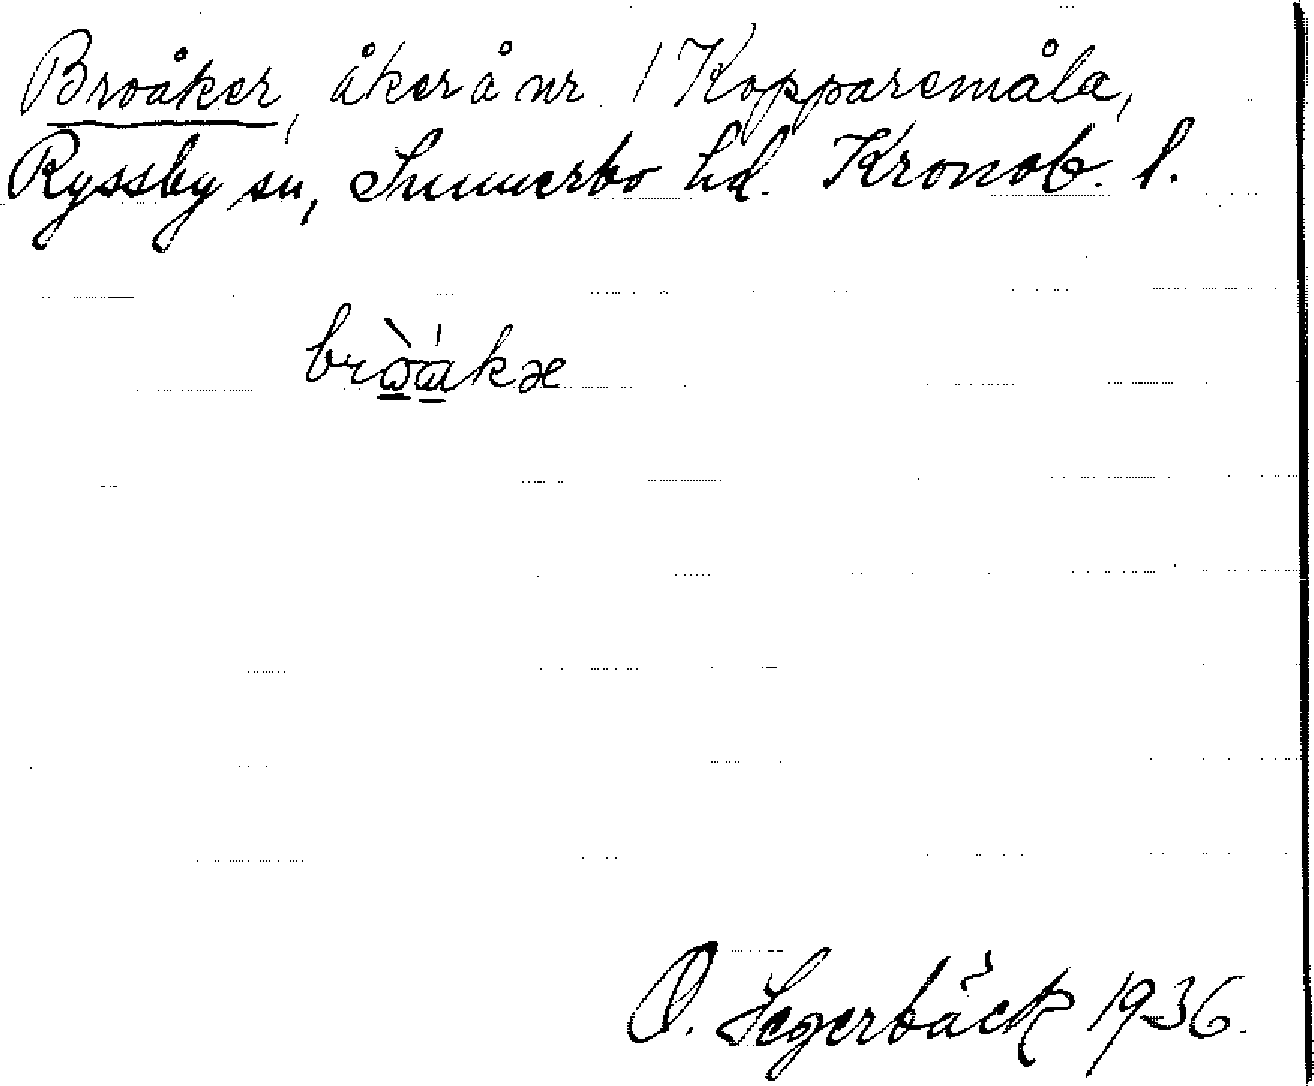 Broåker, åker å nr 1 Kopparemåla,
Ryssby sn, Sunnerbo hd. Kronob. l.
O. Segerbäck 1936.